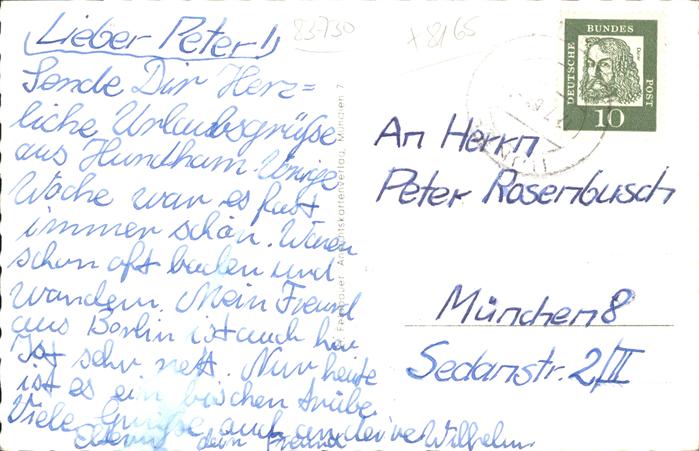 83-730
+ 8165
Lieber Peter!
Sende Dir Herz=
liche Urlaubsgrüße
aus Hundham. Vorige
Woche war es fast
immer schön. Waren
schon oft baden und
wandern. Mein Freund
aus Berlin ist auch hier
Ist sehr nett. Nur heute
ist es ein bischen trübe.
Viele Grüße auch an deine
Eltern dein Freund Wilhelm.
Ansichtskartenverlag, München 7
DEUTSCHE BUNDES POST
Dürer
10
An Herrn
Peter Rosenbusch
München 8
Sedanstr. 2/II